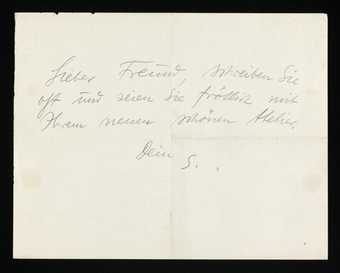 Lieber Freund, schreiben Sie
oft und seien Sie fröhlich mit
Ihrem neuen schönen Atelier.
Dein S..